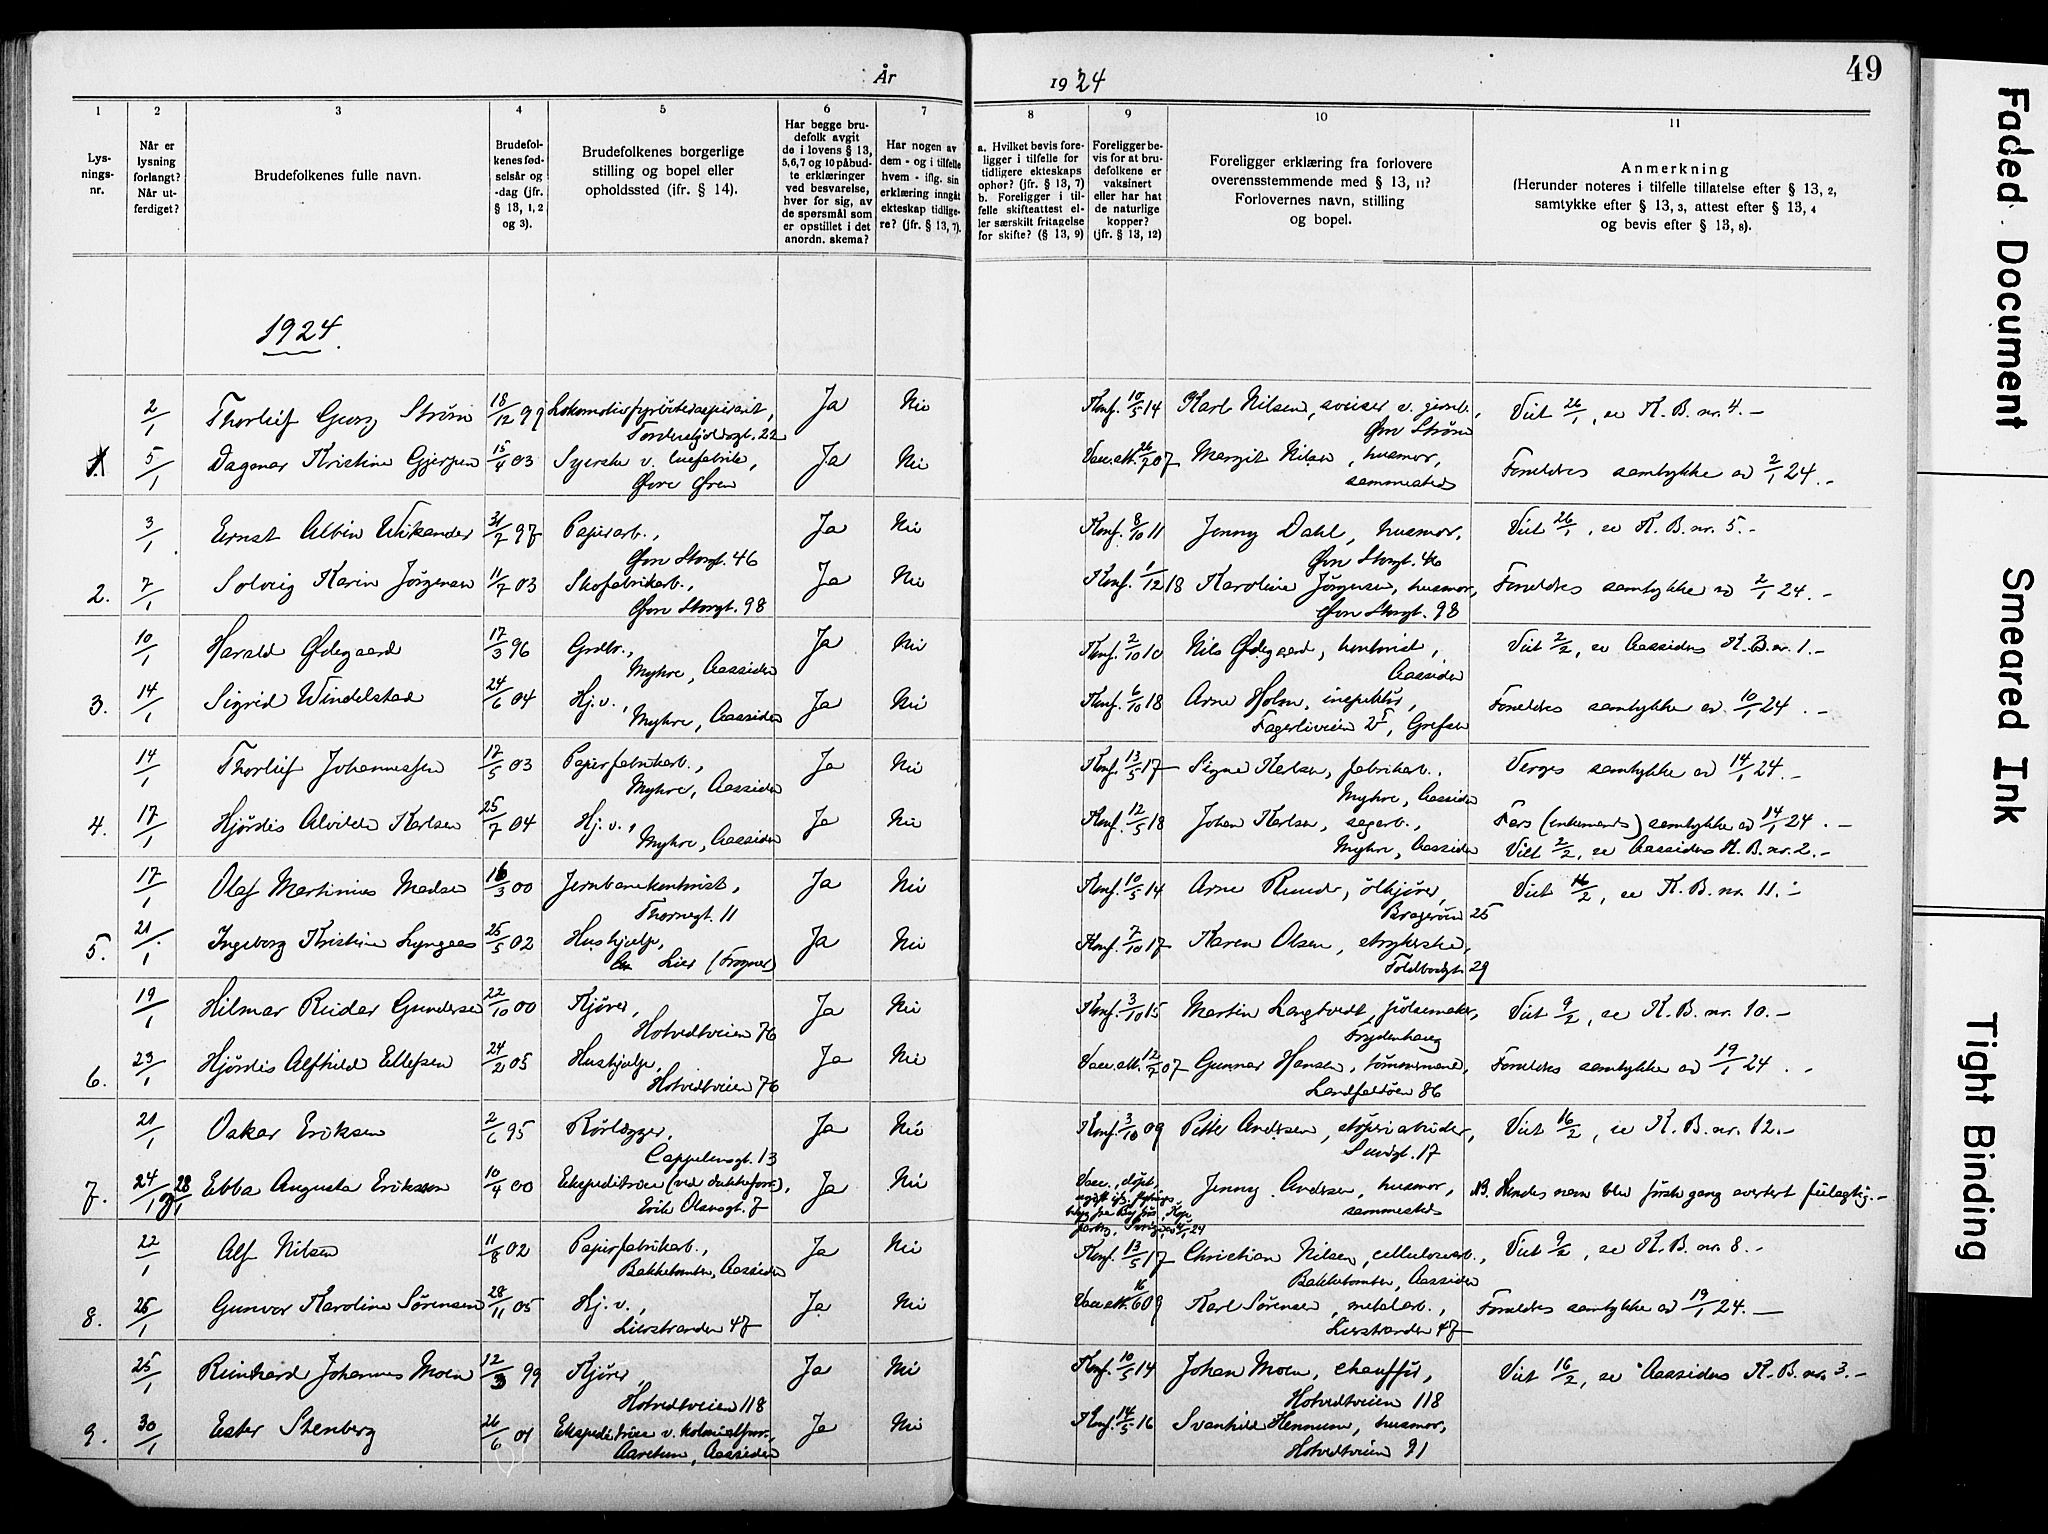 År 1924
49
1
2
3
4
5
6
7
8
9
10
11
Lys-
nings-
nr.
Når er
lysning
forlangt?
Når ut-
ferdiget?
Brudefolkenes fulle navn.
Brudefol-
kenes fød-
selsår og
-dag (jfr.
§ 13, 1, 2
og 3).
Brudefolkenes borgerlige
stilling og bopel eller
opholdssted (jfr. § 14).
Har begge bru-
defolk avgit
de i lovens § 13,
5, 6, 7 og 10 påbud-
te erklæringer
ved besvarelse,
hver for sig, av
de spørsmål som
er opstillet i det
anordn. skema?
Har nogen av
dem - og i tilfelle
hvem - iflg. sin
erklæring inngåt
ekteskap tidlige-
re? (jfr. § 13, 7).
a. Hvilket bevis fore-
ligger i tilfelle for
tidligere ekteskaps
ophør? (jfr. § 13, 7)
b. Foreligger i til-
felle skifteattest el-
ler særskilt fritagelse
for skifte? (§ 13, 9)
Foreligger be-
vis for at bru-
defolkene er
vaksinert
eller har hat
de naturlige
kopper?
(jfr. § 13, 12)
Foreligger erklæring fra forlovere
overensstemmende med § 13, 11?
Forlovernes navn, stilling
og bopel.
Anmerkning
(Herunder noteres i tilfelle tillatelse efter § 13, 2,
samtykke efter § 13, 3, attest efter § 13, 4
og bevis efter § 13, 8).
1924.
2/1 Thorleif Georg Strøm 18/12 99 Lokomotivfyrbøteraspirant, Ja Nei Konf. 10/5 14 Karl Nilsen, sveiser v. jernb., Viet 26/1, se K. B. nr. 4. -
Tordenskjoldsgt. 22 Øvre Strøm
1 5/1 Dagmar Kristine Gjerpen 15/4 03 Syerske v. luefabrik, Ja Nei Vacc. att. 26/7 07 Margit Nilsen, husmor, Foreldres samtykke av 2/1 24. -
Øvre Øren sammesteds
3/1 Ernst Albin Wikander 31/7 97 Papirarb., Ja Nei Konf. 8/10 11 Jenny Dahl, husmor, Viet 26/1, se K. B. nr. 5. -
Øvre Storgt. 46 Øvre Storgt. 46
2. 7/1 Solveig Karin Jørgensen 11/7 03 Skofabrikarb., Ja Nei Konf. 1/12 18 Karoline Jørgensen, husmor, Foreldres samtykke av 2/1 24. -
Øvre Storgt. 98 Øvre Storgt. 98
10/1 Harald Ødegaard 17/3 96 Grdbr., Ja Nei Konf. 2/10 10 Nils Ødegaard, kontorist, Viet 2/2, se Aassidens K. B. nr. 1. -
Myhre, Aassiden Aassiden
3. 14/1 Sigrid Windelstad 24/6 04 Hj. v., Ja Nei Konf. 6/10 18 Arne Holm, inspektør, Foreldres samtykke av 10/1 24. -
Myhre, Aassiden Fagerliveien, Grefsen
14/1 Thorleif Johannessen 17/5 03 Papirfabrikarb., Ja Nei Konf. 13/5 17 Signe Karlsen, fabrikarb., Verges samtykke av 14/1 24. -
Myhre, Aassiden Myhre, Aassiden
4. 17/1 Hjørdis Alvilde Karlsen 25/7 04 Hj. v., Ja Nei Konf. 12/5 18 Johan Karlsen, sagarb., Fars (enkemands) samtykke av 14/1 24. -
Myhre, Aassiden Myhre, Aassiden Viet 2/2, se Aassidens K. B. nr. 2. -
17/1 Olaf Martinius Madsen 16/3 00 Jernbanekontorist, Ja Nei Konf. 10/5 14 Arne Ruud, ølkjører, Viet 16/2, se K. B. nr. 11. -
Thornegt. 11 Bragerøen 25
5. 21/1 Ingeborg Kristine Lyngaas 25/5 02 Hushjelp, Ja Nei Konf. 7/10 17 Karen Olsen, strykerske,
Lier (Frogner) Toldbodgt. 29
19/1 Hilmar Reidar Gundersen 22/10 00 Kjører, Ja Nei Konf. 3/10 15 Martin Langtvedt, pølsemaker, Viet 9/2, se K. B. nr. 10. -
Hotvedtveien 76 Frydenhaug
6. 23/1 Hjørdis Alfhild Ellefsen 24/2 05 Hushjelp, Ja Nei Vacc. att. 12/7 07 Gunnar Hansen, tømmermand, Foreldres samtykke av 19/1 24. -
Hotvedtveien 76 Landfaldøen 86
21/1 Oskar Eriksen 2/6 95 Rørlægger, Ja Nei Konf. 3/10 09 Petter Andersen, støperiarbeider, Viet 16/2, se K. B. nr. 12. -
Cappelensgt. 13 Sundgt. 17
7. 24/1 28/1 Ebba Augusta Eriksson 10/4 00 Ekspeditrice (ved dukkeforr.), Ja Nei Vacc., døpt, Jenny Andersen, husmor, NB. Hendes navn blev første gang avertert feilagtig. -
Erik Olsensgt. 7 sammesteds
22/1 Alf Nilsen 11/8 02 Papirfabrikarb., Ja Nei Konf. 13/5 17 Christian Nilsen, cellulosearb., Viet 9/2, se K. B. nr. 8. -
Bakketomten, Aassiden Bakketomten, Aassiden
8. 25/1 Gunvor Karoline Sørensen 28/11 05 Hj. v., Ja Nei Vacc. att. 16/6 09 Karl Sørensen, metalarb., Foreldres samtykke av 19/1 24. -
Lierstranden 47 Lierstranden 47
25/1 Reinhard Johannes Moen 12/3 99 Kjører, Ja Nei Konf. 10/5 14 Johan Moen, chauffør, Viet 16/2, se Aassidens K. B. nr. 3. -
Hotvedtveien 118 Hotvedtveien 118
9. 30/1 Ester Stenberg 26/6 01 Ekspeditrice v. kolonialforr., Ja Nei Konf. 14/5 16 Svanhild Hennum, husmor,
Aaretun, Aassiden Hotvedtveien 91
Faded Document
Smeared Ink
Tight Binding